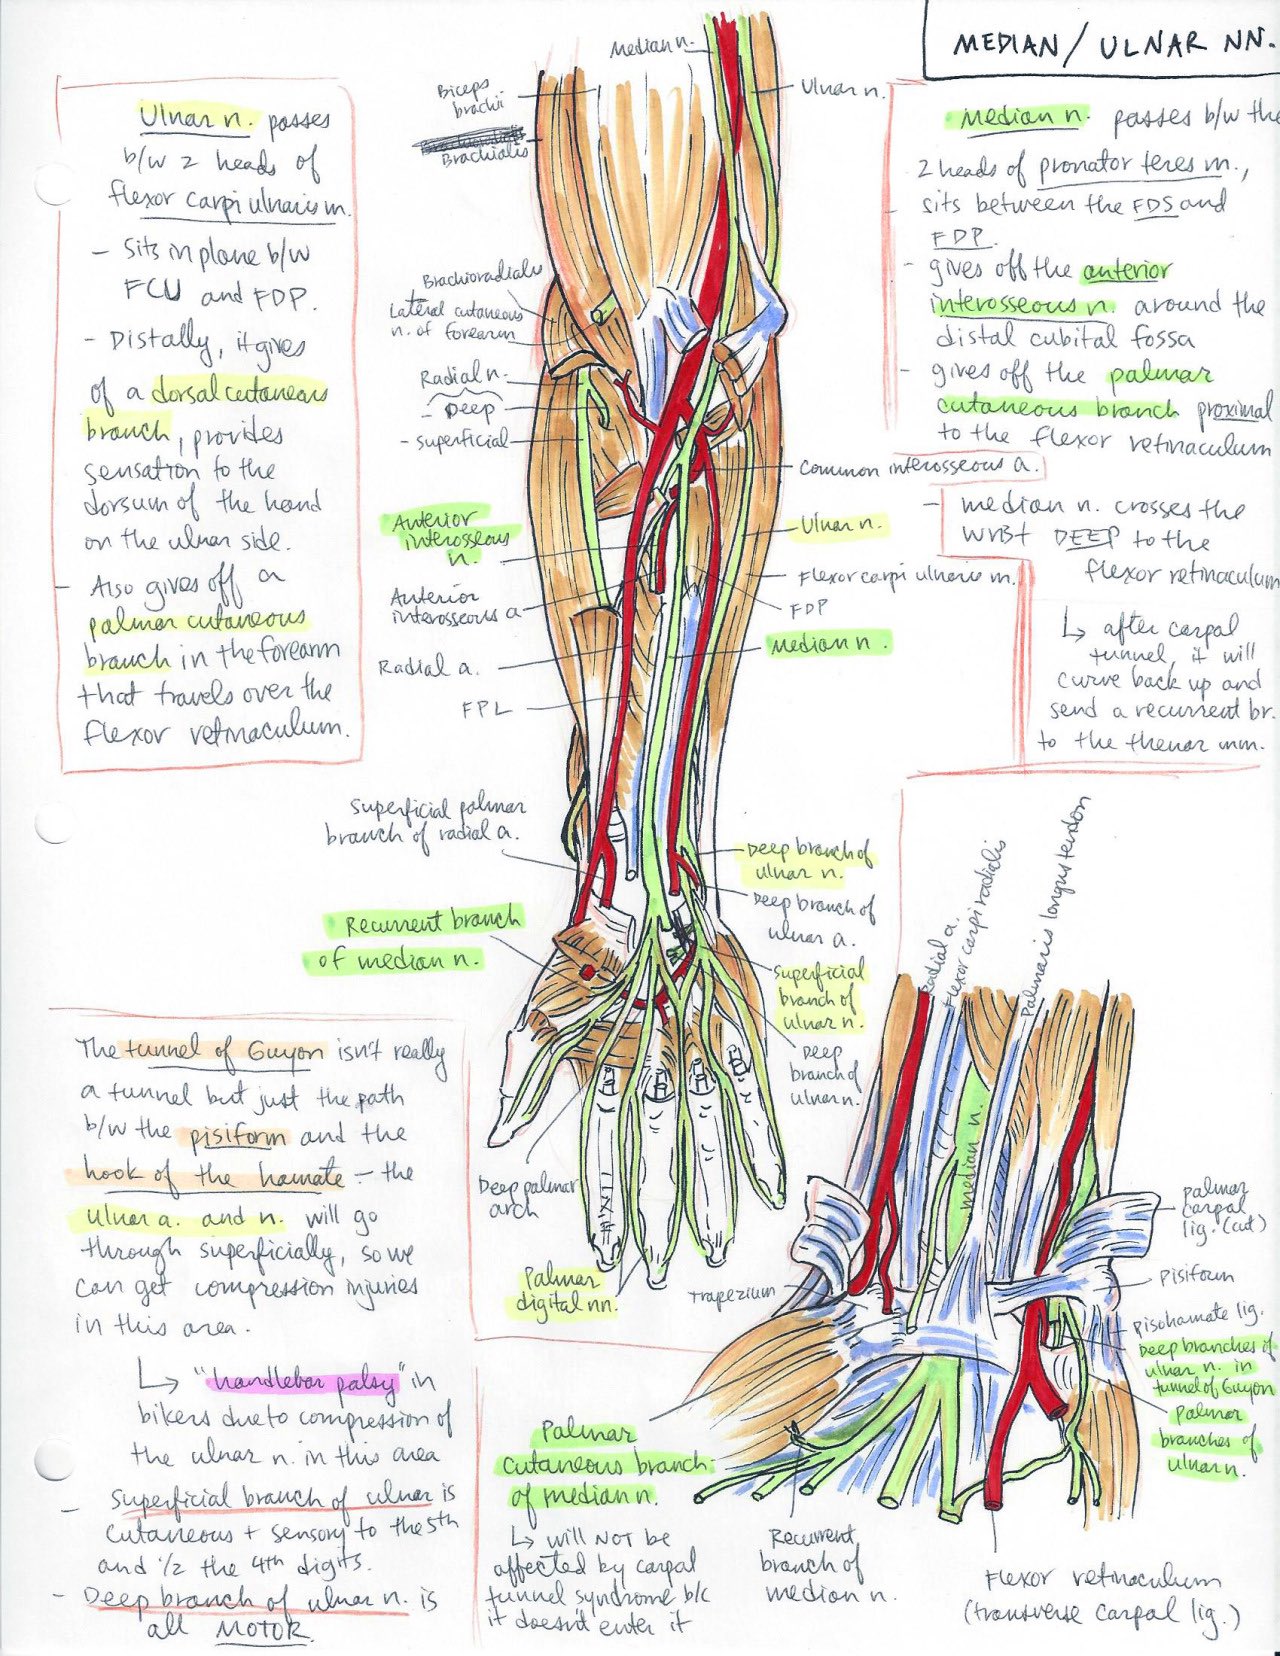 MEDIAN / ULNAR NN.
Ulnar n. passes
b/w 2 heads of
flexor carpi ulnaris m.
- Sits in plane b/w
FCU and FDP.
- Distally, it gives
of a dorsal cutaneous
branch, provides
sensation to the
dorsum of the hand
on the ulnar side.
- Also gives off a
palmar cutaneous
branch in the forearm
that travels over the
flexor retinaculum.
Median n.
Biceps
brachii
Brachialis
Ulnar n.
Brachioradialis
Lateral cutaneous
n. of forearm
Radial n.
- Deep
- superficial
Common interosseous a.
Anterior
interosseous
n.
Ulnar n.
Flexor carpi ulnaris m.
FDP
Anterior
interosseous a
Median n.
Radial a.
FPL
Superficial palmar
branch of radial a.
Deep branch of
ulnar n.
Deep branch of
ulnar a.
Recurrent branch
of median n.
Superficial
branch of
ulnar n.
Deep
branch of
ulnar n.
Deep palmar
arch
Palmar
digital nn.
Median n. passes b/w the
2 heads of pronator teres m.,
- sits between the FDS and
FDP.
- gives off the anterior
interosseous n. around the
distal cubital fossa
- gives off the palmar
cutaneous branch proximal
to the flexor retinaculum
- median n. crosses the
wrist DEEP to the
flexor retinaculum
↳ after carpal
tunnel, it will
curve back up and
send a recurrent br.
to the thenar mm.
The tunnel of Guyon isn't really
a tunnel but just the path
b/w the pisiform and the
hook of the hamate - the
ulnar a. and n. will go
through superficially, so we
can get compression injuries
in this area.
↳ "handlebar palsy" in
bikers due to compression of
the ulnar n. in this area
- Superficial branch of ulnar is
cutaneous + sensory to the 5th
and 1/2 the 4th digits.
- Deep branch of ulnar n. is
all MOTOR.
Radial a.
Flexor carpi radialis
Palmaris longus tendon
median n.
palmar
carpal
lig. (cut)
Trapezium
Pisiform
pisohamate lig.
Deep branches of
ulnar n. in
tunnel of Guyon
Palmar
branches of
ulnar n.
Palmar
cutaneous branch
of median n.
↳ will NOT be
affected by carpal
tunnel syndrome b/c
it doesn't enter it
Recurrent
branch of
median n.
Flexor retinaculum
(transverse carpal lig.)